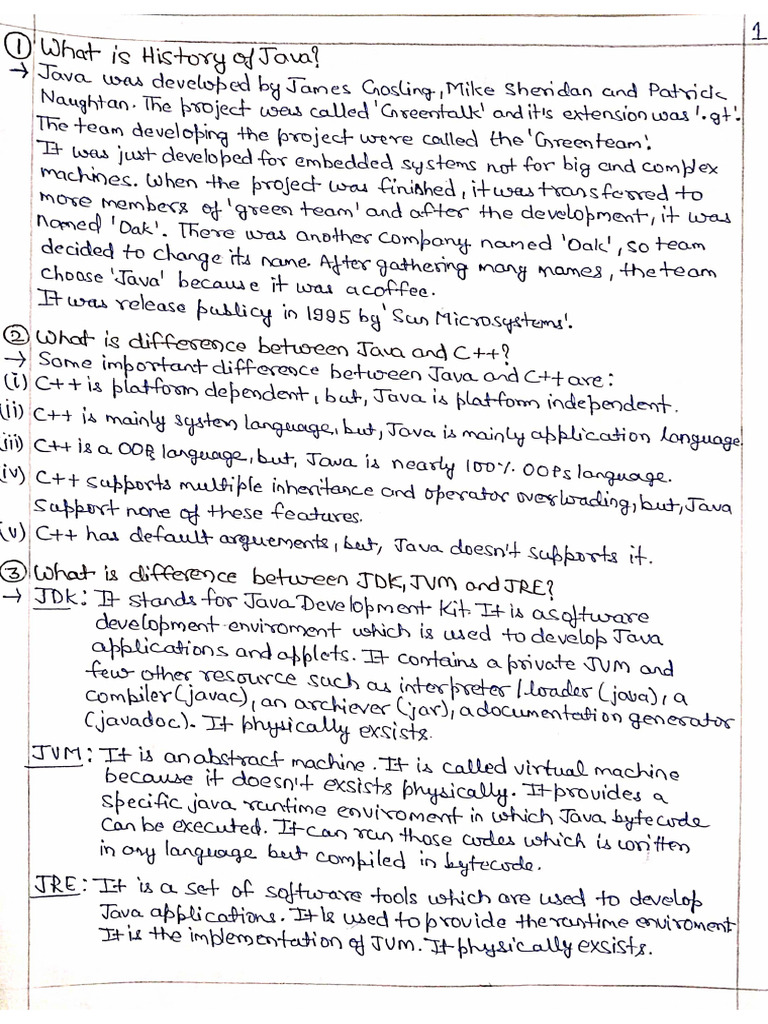 1
① What is History of Java?
→ Java was developed by James Gosling, Mike Sheridan and Patrick
Naughtan. The project was called 'Greentalk' and it's extension was '.gt'.
The team developing the project were called the 'Greenteam'.
It was just developed for embedded systems not for big and complex
machines. When the project was finished, it was transferred to
more members of 'green team' and after the development, it was
named 'Oak'. There was another company named 'Oak', so team
decided to change its name. After gathering many names, the team
choose 'Java' because it was a coffee.
It was release publicy in 1995 by 'Sun Microsystems'.
② What is difference between Java and C++?
→ Some important difference between Java and C++ are:
(i) C++ is platform dependent, but, Java is platform independent.
(ii) C++ is mainly system language, but, Java is mainly application language.
(iii) C++ is a OOP language, but, Java is nearly 100% OOPs language.
(iv) C++ supports multiple inheritance and operator overloading, but, Java
support none of these features.
(v) C++ has default arguements, but, Java doesn't supports it.
③ What is difference between JDK, JVM and JRE?
→ JDK: It stands for Java Development Kit. It is a software
development enviroment which is used to develop Java
applications and applets. It contains a private JVM and
few other resource such as interpreter/loader (java), a
compiler (javac), an archiever (jar), a documentation generator
(javadoc). It physically exsists.
JVM: It is an abstract machine. It is called virtual machine
because it doesn't exsists physically. It provides a
specific java runtime enviroment in which Java bytecode
can be executed. It can run those codes which is written
in any language but compiled in bytecode.
JRE: It is a set of software tools which are used to develop
Java applications. It is used to provide the runtime enviroment
It is the implementation of JVM. It physically exsists.